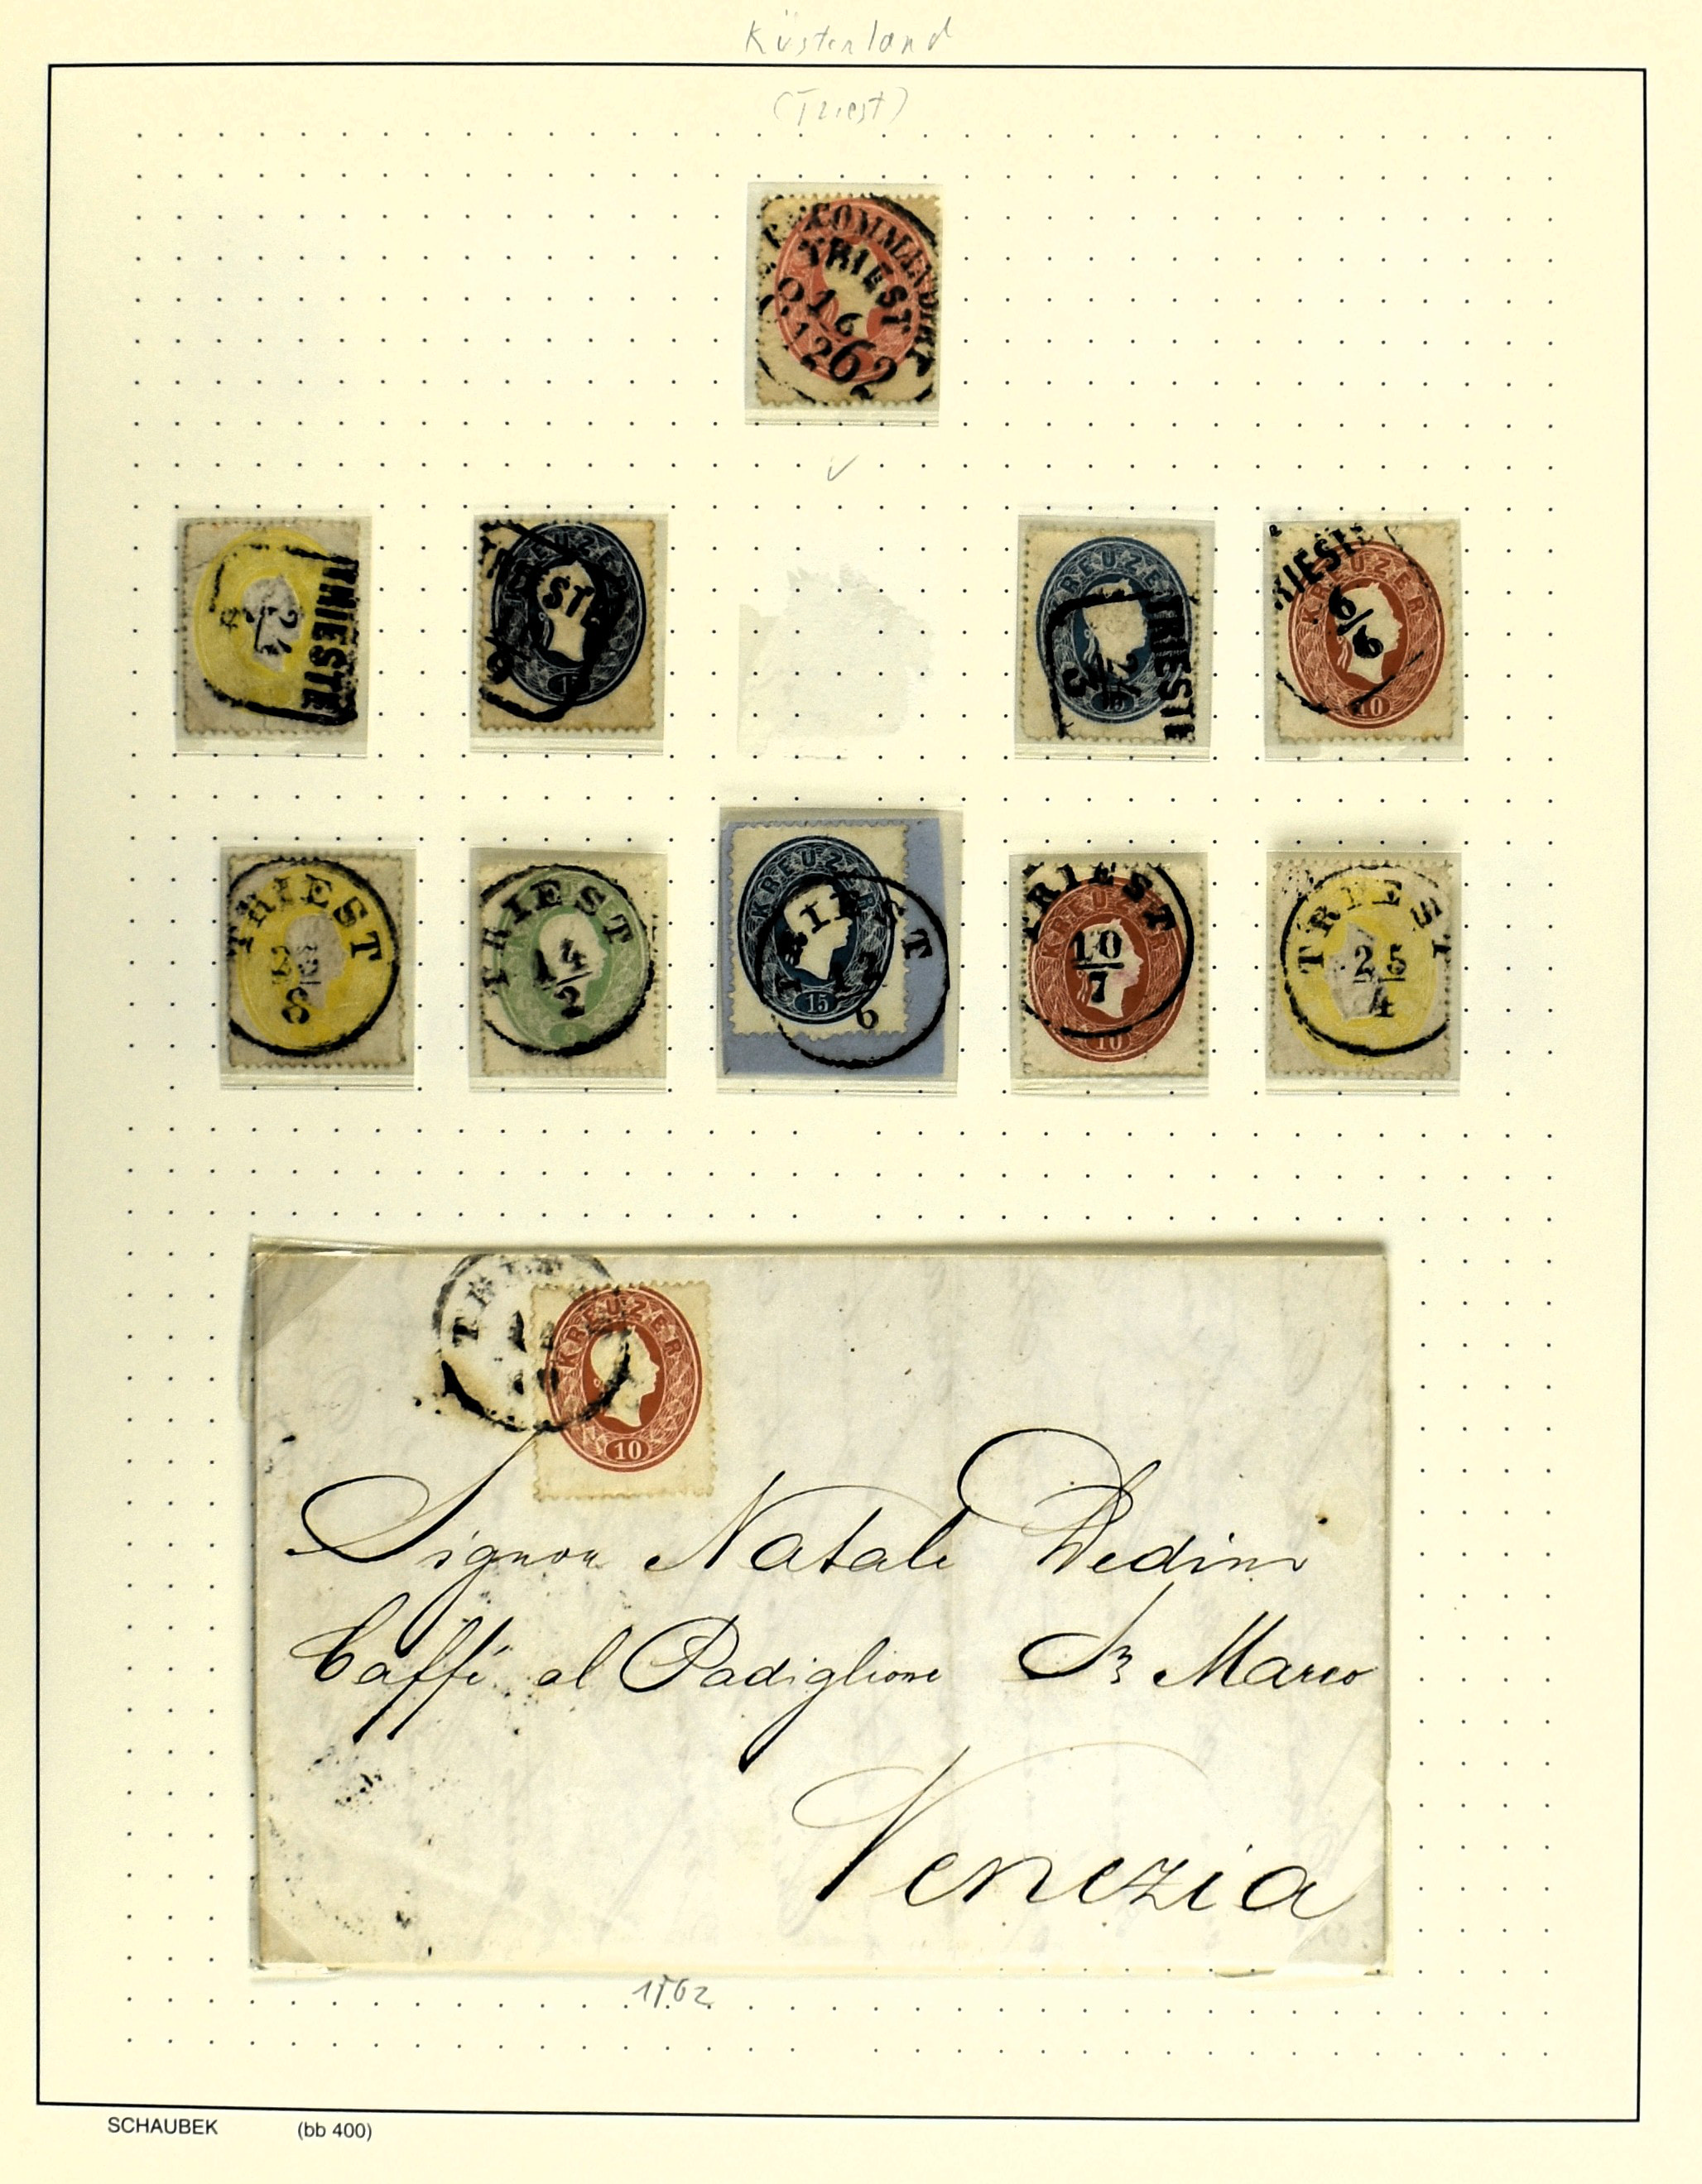 Küstenland
(Triest)
RECOMMANDIRT
TRIEST
16
62
TRIESTE
KREUZER
TRIESTE
KREUZER
15
TRIESTE
KREUZER
10
TRIESTE
6/6
TRIEST
TRIEST
14/2
KREUZER
15
TRIEST
6
KREUZER
10
TRIEST
10/7
TRIEST
25/4
KREUZER
10
Signor Natale Dedini
Caffé al Padiglione Sn Marco
Venezia
1862
SCHAUBEK (bb 400)